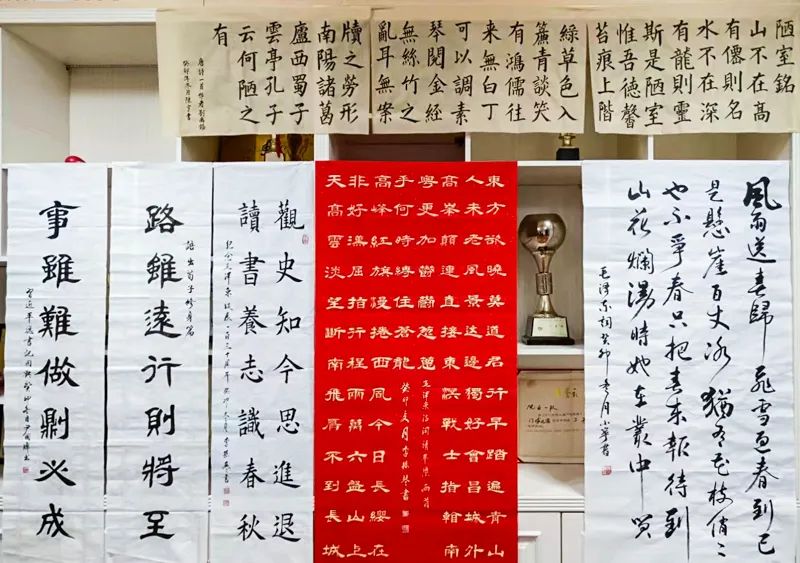 陋室銘
山不在高
有僊則名
水不在深
有龍則靈
斯是陋室
惟吾德馨
苔痕上階
綠草色入
簾青談笑
有鴻儒往
來無白丁
可以調素
琴閱金經
無絲竹之
亂耳無案
牘之勞形
南陽諸葛
廬西蜀子
雲亭孔子
云何陋之
有
唐詩一首作者劉禹錫
癸卯年冬月陳宇書
風雨送春歸飛雪迎春到已
是懸崖百丈冰猶有花枝俏〻
也不爭春只把春來報待到
山花爛漫時她在叢中笑
毛澤東詞癸卯春月小寧書
東方欲曉莫道君行早踏遍青山
人未老風景這邊獨好會昌城外
高峯顛連直接東溟戰士指看南
粵更加鬱鬱蔥蔥
毛澤東詞清平樂兩首
天高雲淡望斷南飛雁不到長城
非好漢屈指行程兩萬六盤山上
高峰紅旗漫捲西風今日長纓在
手何時縛住蒼龍
癸卯夏月李振琴書
觀史知今思進退
讀書養志識春秋
紀念毛澤東誕辰一百三十周年癸卯冬月
路雖遠行則將至
語出荀子修身篇
事雖難做則必成